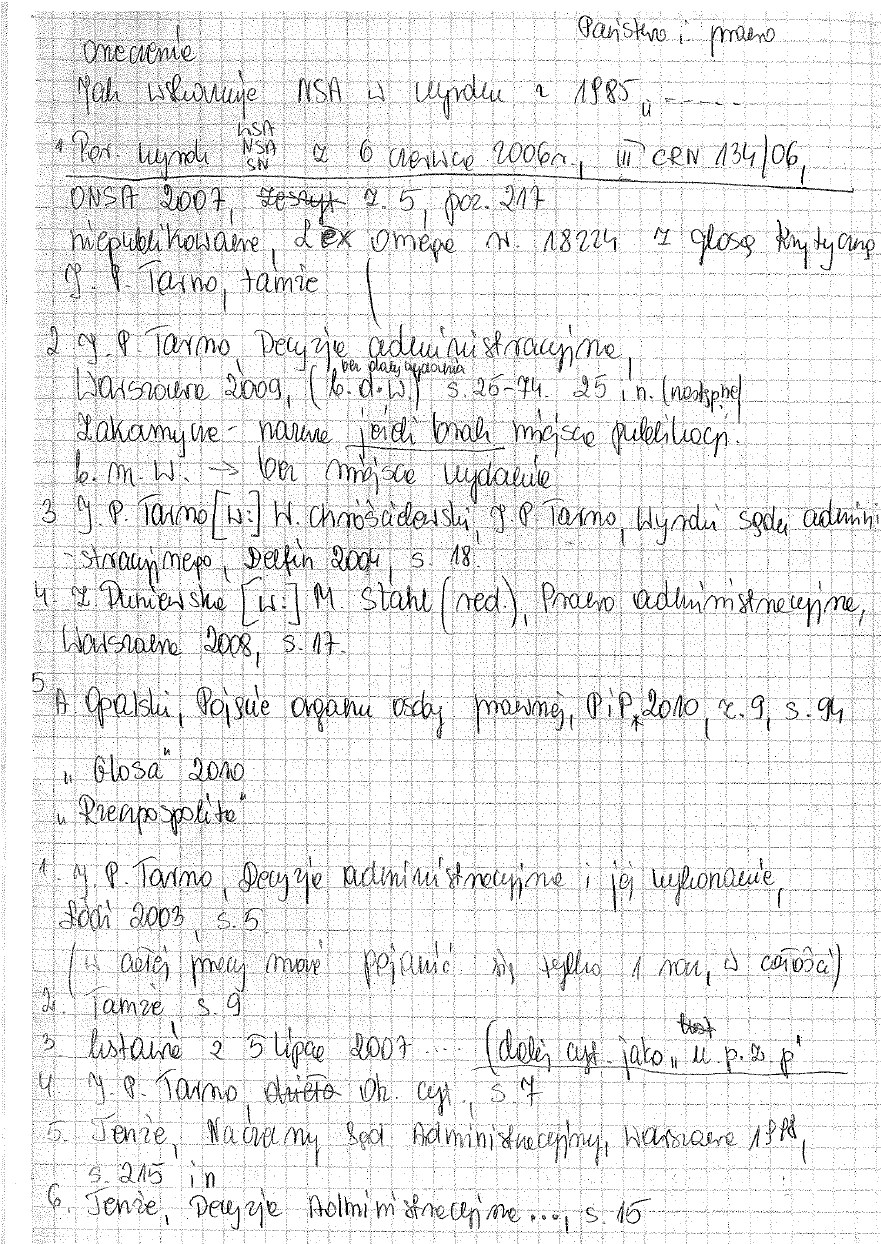 Państwo i prawo
Orzeczenie
Jak wskazuje NSA w wyroku z 1985 „-----
1 Por. wyrok WSA NSA SN z 6 czerwca 2006r., III CRN 134/06,
ONSA 2007, zeszyt z. 5, poz. 217
niepublikowane, Lex Omega nr. 18224 z glosą krytyczną
J. P. Tarno, tamże (
2 J. P. Tarno, Decyzje administracyjne,
bez daty wydania
Warszawa 2009, (b.d.w.) s. 26-74. 25 i n. (następne)
Zakamycze - nazwa jeżeli brak miejsca publikacji.
b. m. w. → bez miejsca wydania
3 J. P. Tarno [w:] W. Chróścielewski, J. P. Tarno, Wyroki sądu admini
-stracyjnego, Delfin 2004, s. 18.
4. Z Duniewska [w:] M. Stahl (red.), Prawo administracyjne,
Warszawa 2008, s. 17.
5
A Opalski, Pojęcie organu osoby prawnej, PiP, 2010, z. 9, s. 94
„Glosa" 2010
„Rzeczpospolita"
1. J. P. Tarno, Decyzje administracyjne i jej wykonanie,
Łódź 2003, s. 5
(w całej pracy może pojawić się tylko 1 raz, w całości)
2. Tamże, s. 9
3 Ustawa z 5 lipca 2007 .... (dalej cyt. jako „u.p.z.p"
4 J. P. Tarno, dzieło Ok. cyt., s 7
5. Tenże, Naczelny Sąd Administracyjny, Warszawa 1998,
s. 215 i n
6. Tenże, Decyzje Administracyjne ..., s. 15